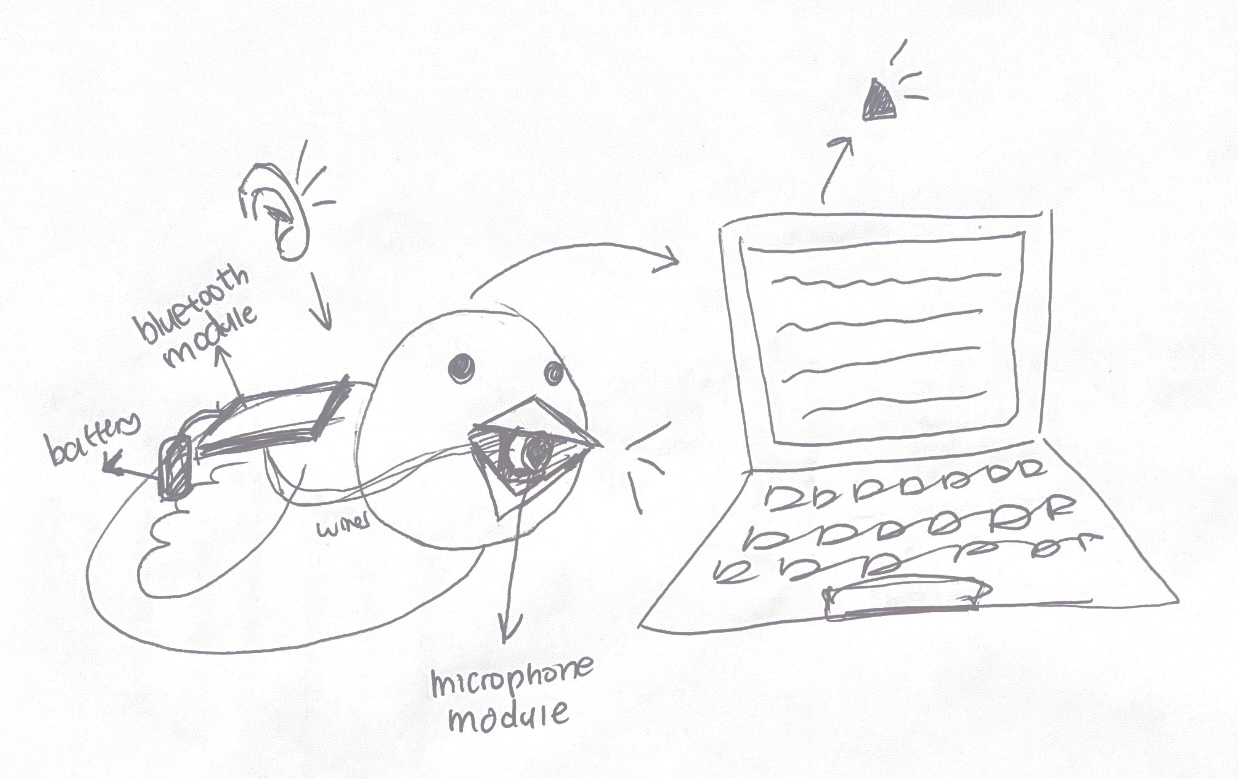 bluetooth
module
battery
wires
microphone
module